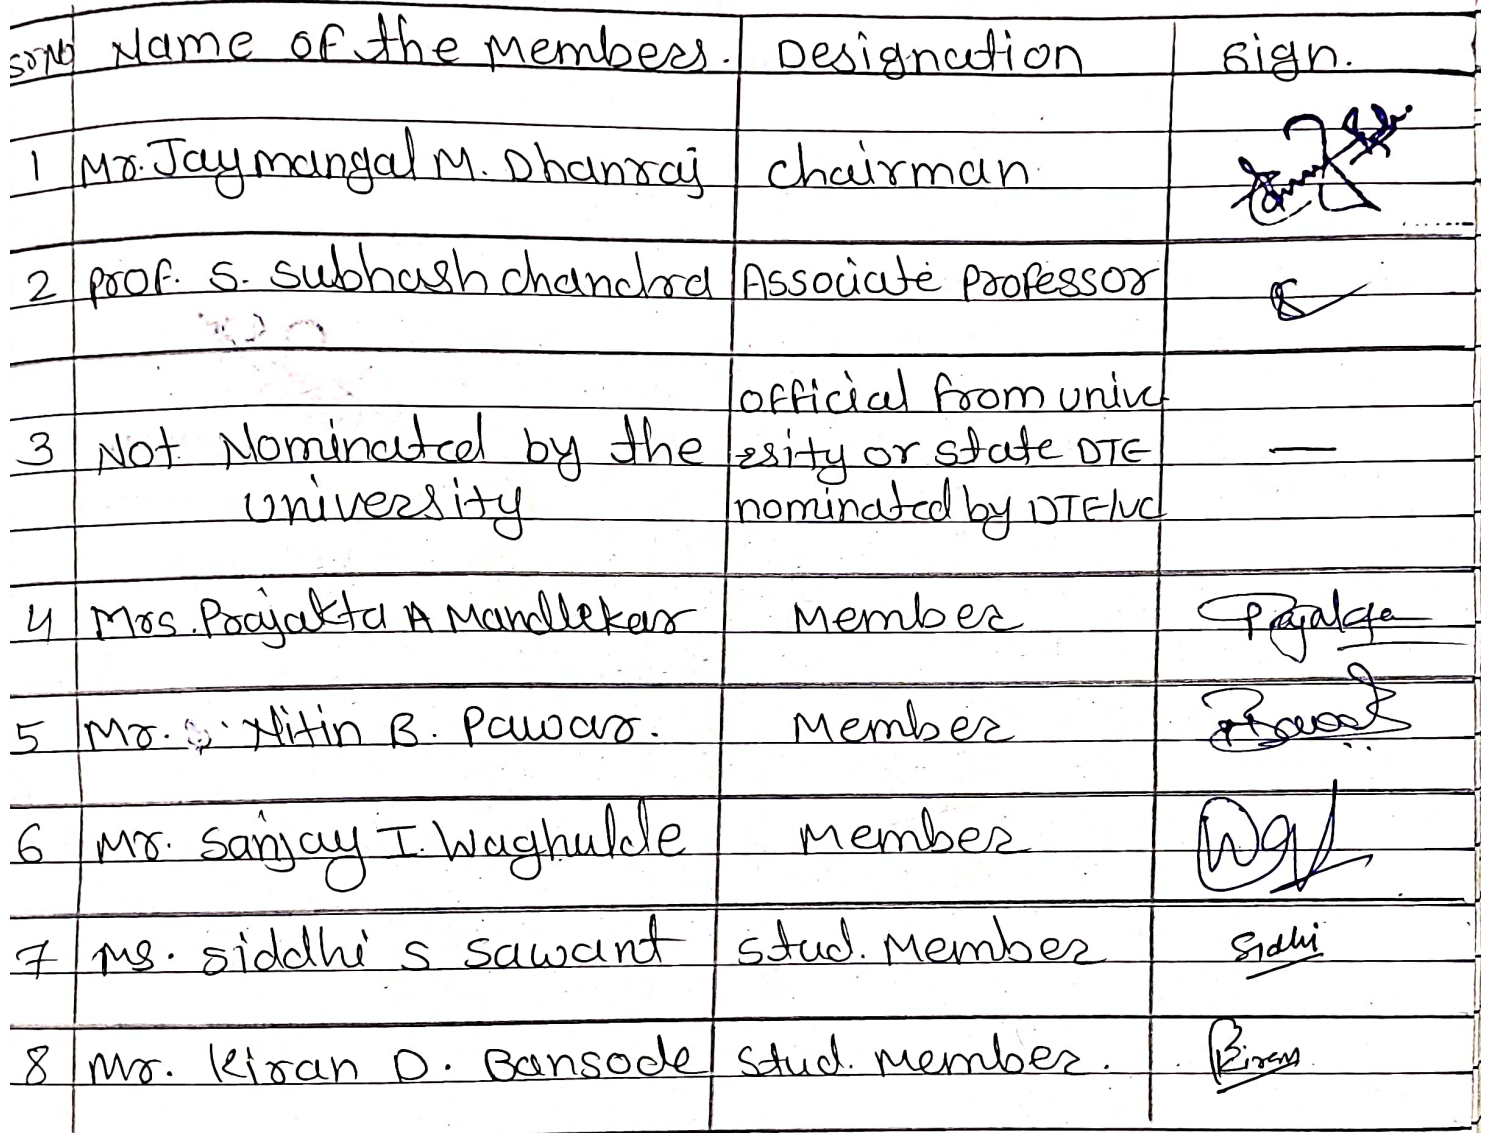 Sr No Name of the Members. Designation Sign.
1 Mr. Jaymangal M. Dhanraj Chairman
2 Prof. S. Subhash Chandra Associate Professor
official from unive
3 Not Nominated by the ersity or state DTE —
University nominated by DTE/VC
4 Mrs. Prajakta A Mandlekar Member Prajakta
5 Mr. Nitin B. Pawar. Member
6 Mr. Sanjay I. Waghulde Member
7 Ms. Siddhi S Sawant Stud. Member Sidhi
8 Mr. Kiran D. Bansode Stud. Member. Kiran